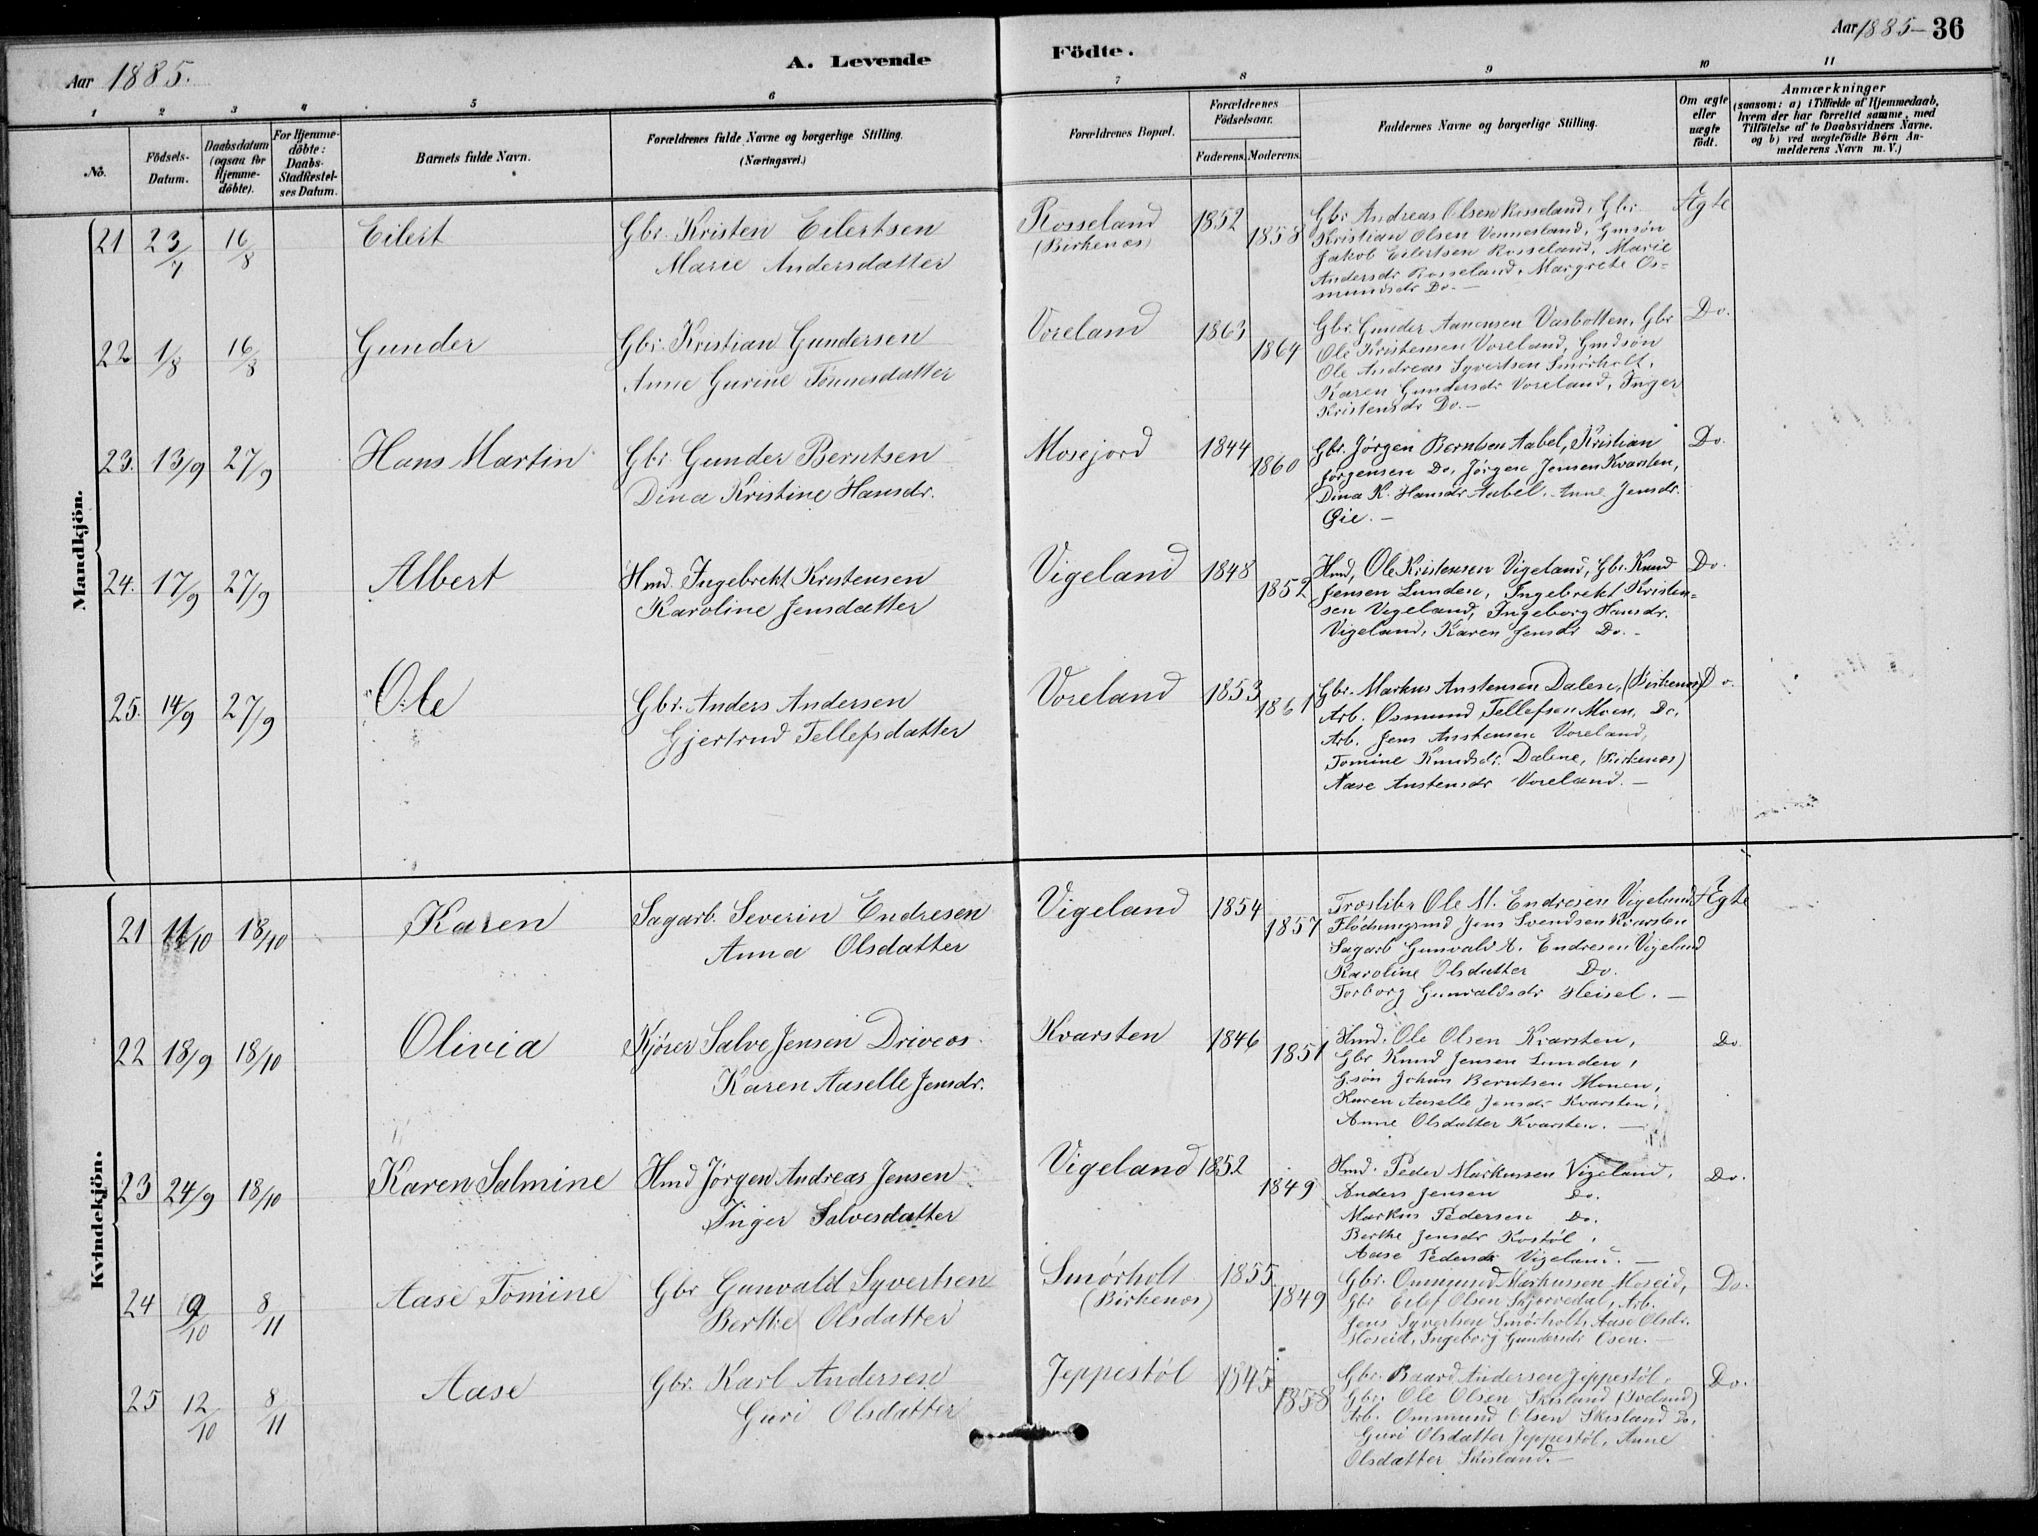 Aar 1885.
A. Levende
Födte.
Aar 1885 — 36
1 2 3 4 5 6 7 8 9 10 11
No.
Födsels-Datum.
Daabsdatum (ogsaa for Hjemme-döbte).
For Hjemme-döbte: Daabs-Stadfæstel-ses Datum.
Barnets fulde Navn.
Forældrenes fulde Navne og borgerlige Stilling. (Næringsvei.)
Forældrenes Bopæl.
Forældrenes Födselsaar.
Faderens. Moderens.
Faddernes Navne og borgerlige Stilling.
Om ægte eller uægte födt.
Anmærkninger
(saasom: a) i Tilfælde af Hjemmedaab,
hvem der har forrettet samme, med
Tilföielse af to Daabsvidners Navne.
og b) ved uægtefödte Börn An-
melderens Navn m. V.)
Mandkjön.
21 23/7 16/8 Eilert
Gbr. Kristen Eilertsen
Marie Andersdatter
Rosseland
(Birkenes)
1852 1858
Gbr. Andreas Olsen Rosseland, Gbr.
Kristian Olsen Vennesland, Gmsøn
Jakob Eilertsen Rosseland, Marie
Andersdr Rosseland, Margrete Os-
mundsdr Do. —
Ægte
22. 1/8 16/8 Gunder
Gbr. Kristian Gundersen
Anne Gurine Tönnesdatter
Voreland
1863 1864
Gbr. Gunder Aanensen Vasbotten, Gbr
Ole Kristensen Voreland, Gmdsøn
Ole Andreas Syvertsen Smørholt,
Karen Gundersdr Voreland, Inger
Kristensdr Do. —
Do.
23. 13/9 27/9 Hans Martin
Gbr. Gunder Berntsen
Dina Kristine Hansdr.
Mosejord
1844 1860
Gbr. Jørgen Berntsen Aabel, Kristian
Jørgensen Do, Jørgen Jensen Kvarsten,
Dina K. Hansdr Aabel, Anne Jensdr.
Øie. —
Do.
24. 17/9 27/9 Albert
Hmd. Ingebrekt Kristensen
Karoline Jensdatter
Vigeland
1848 1852
Hmd, Ole Kristensen Vigeland, Gbr. Knud
Jensen Lunden, Ingebrekt Kristen-
sen Vigeland, Ingeborg Hansdr.
Vigeland, Karen Jensdr Do. —
Do.
25. 14/9 27/9 Ole
Gbr. Anders Andersen
Gjertrud Tellefsdatter
Voreland
1853 1861
Gbr. Markus Anstensen Dalen, (Birkenes)
Arb. Osmund Tellefsen Moen, Do,
Arb. Jens Anstensen Voreland,
Tomine Knudsdr. Dalene, (Birkenes)
Aase Anstensdr Voreland. —
Do.
Kvindekjön.
21 11/10 18/10 Karen
Sagarb. Severin Endresen
Anna Olsdatter
Vigeland
1854 1857
Træslib. Ole M. Endresen Vigeland
Flødningsmd Jens Svendsen Kvarsten
Sagarb Gunvald A. Endresen Vigeland
Karoline Olsdatter Do.
Torborg Gunvaldsdr Heisel. —
Ægte
22 18/9 18/10 Olivia
Kjører Salve Jensen Driveos
Karen Aaselle Jensdr.
Kvarsten
1846 1851
Hmd. Ole Olsen Kvarsten,
Gbr Knud Jensen Lunden,
G.søn Johan Berntsen Monen,
Karen Aaselle Jensdr Kvarsten,
Anne Olsdatter Kvarsten. —
Do.
23 24/9 18/10 Karen Salmine
Hmd Jörgen Andreas Jensen
Inger Salvesdatter
Vigeland
1852 1849
Hmd. Peder Markussen Vigeland,
Anders Jensen Do.
Markus Pedersen Do.
Berthe Jensdr Kostøl,
Aase Pedersdr Vigeland. —
Do.
24 9/10 8/11 Aase Tomine
Gbr Gunvald Syvertsen
Berthe Olsdatter
Smørholt
(Birkenes)
1855 1849
Gbr. Ommund Markussen Moseid,
Gbr Eilef Olsen Skjorvedal, Arb.
Jens Syvertsen Smörholt, Aase Olsdr.
Moseid, Ingeborg Gundersdr Osen. —
Do.
25 12/10 8/11 Aase
Gbr. Karl Andersen
Guri Olsdatter
Jeppestøl
1845 1858
Gbr. Baard Andersen Jeppestøl,
Gbr. Ole Olsen Skisland (Iveland)
Arb. Ommund Olsen Skisland Do,
Guri Olsdatter Jeppestøl, Anne
Olsdatter Skisland. —
Do.